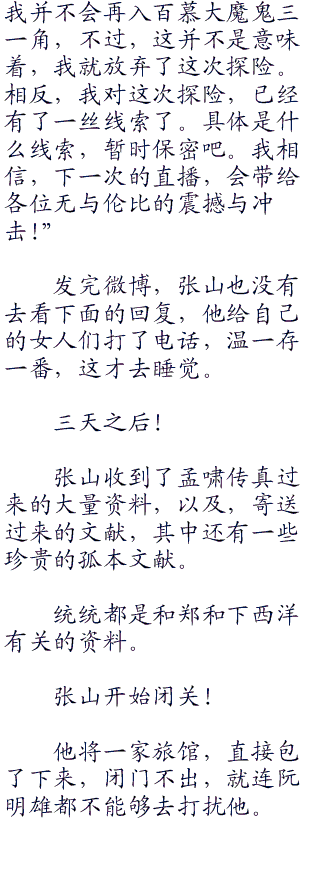 我并不会再入百慕大魔鬼三
一角，不过，这并不是意味
着，我就放弃了这次探险。
相反，我对这次探险，已经
有了一丝线索了。具体是什
么线索，暂时保密吧。我相
信，下一次的直播，会带给
各位无与伦比的震撼与冲
击！”
发完微博，张山也没有
去看下面的回复，他给自己
的女人们打了电话，温一存
一番，这才去睡觉。
三天之后！
张山收到了孟啸传真过
来的大量资料，以及，寄送
过来的文献，其中还有一些
珍贵的孤本文献。
统统都是和郑和下西洋
有关的资料。
张山开始闭关！
他将一家旅馆，直接包
了下来，闭门不出，就连阮
明雄都不能够去打扰他。